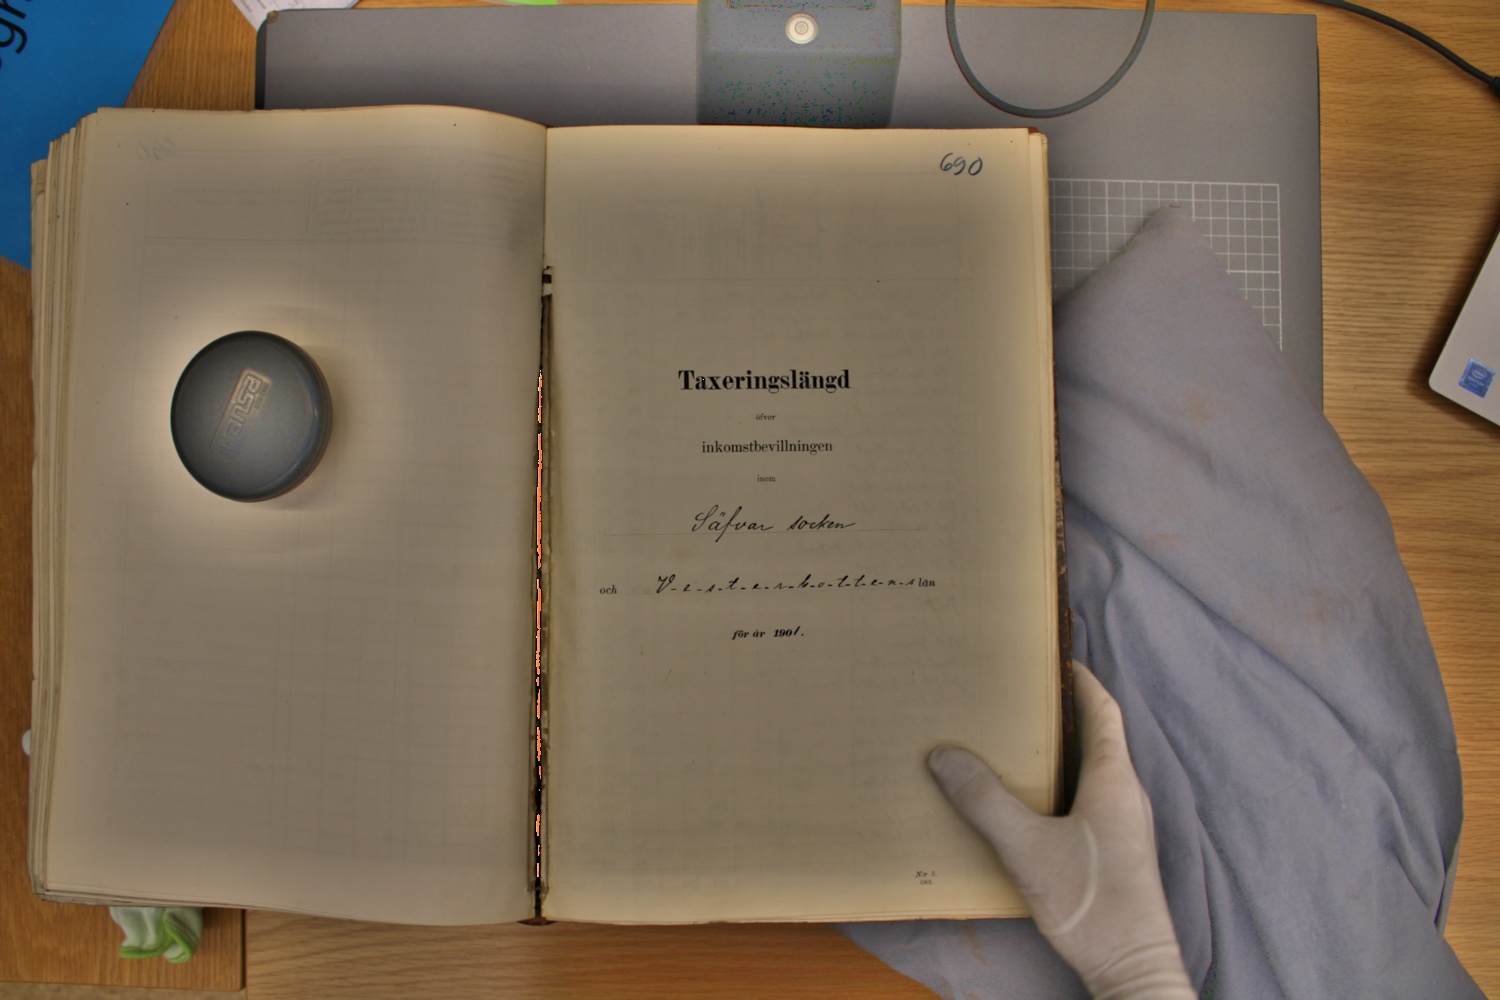 690
Taxeringslängd
öfver
inkomstbevillningen
inom
Säfvar socken
och V-e-s-t-e-r-b-o-t-t-e-n-s län
för år 1901.
N:r 5.
1901.